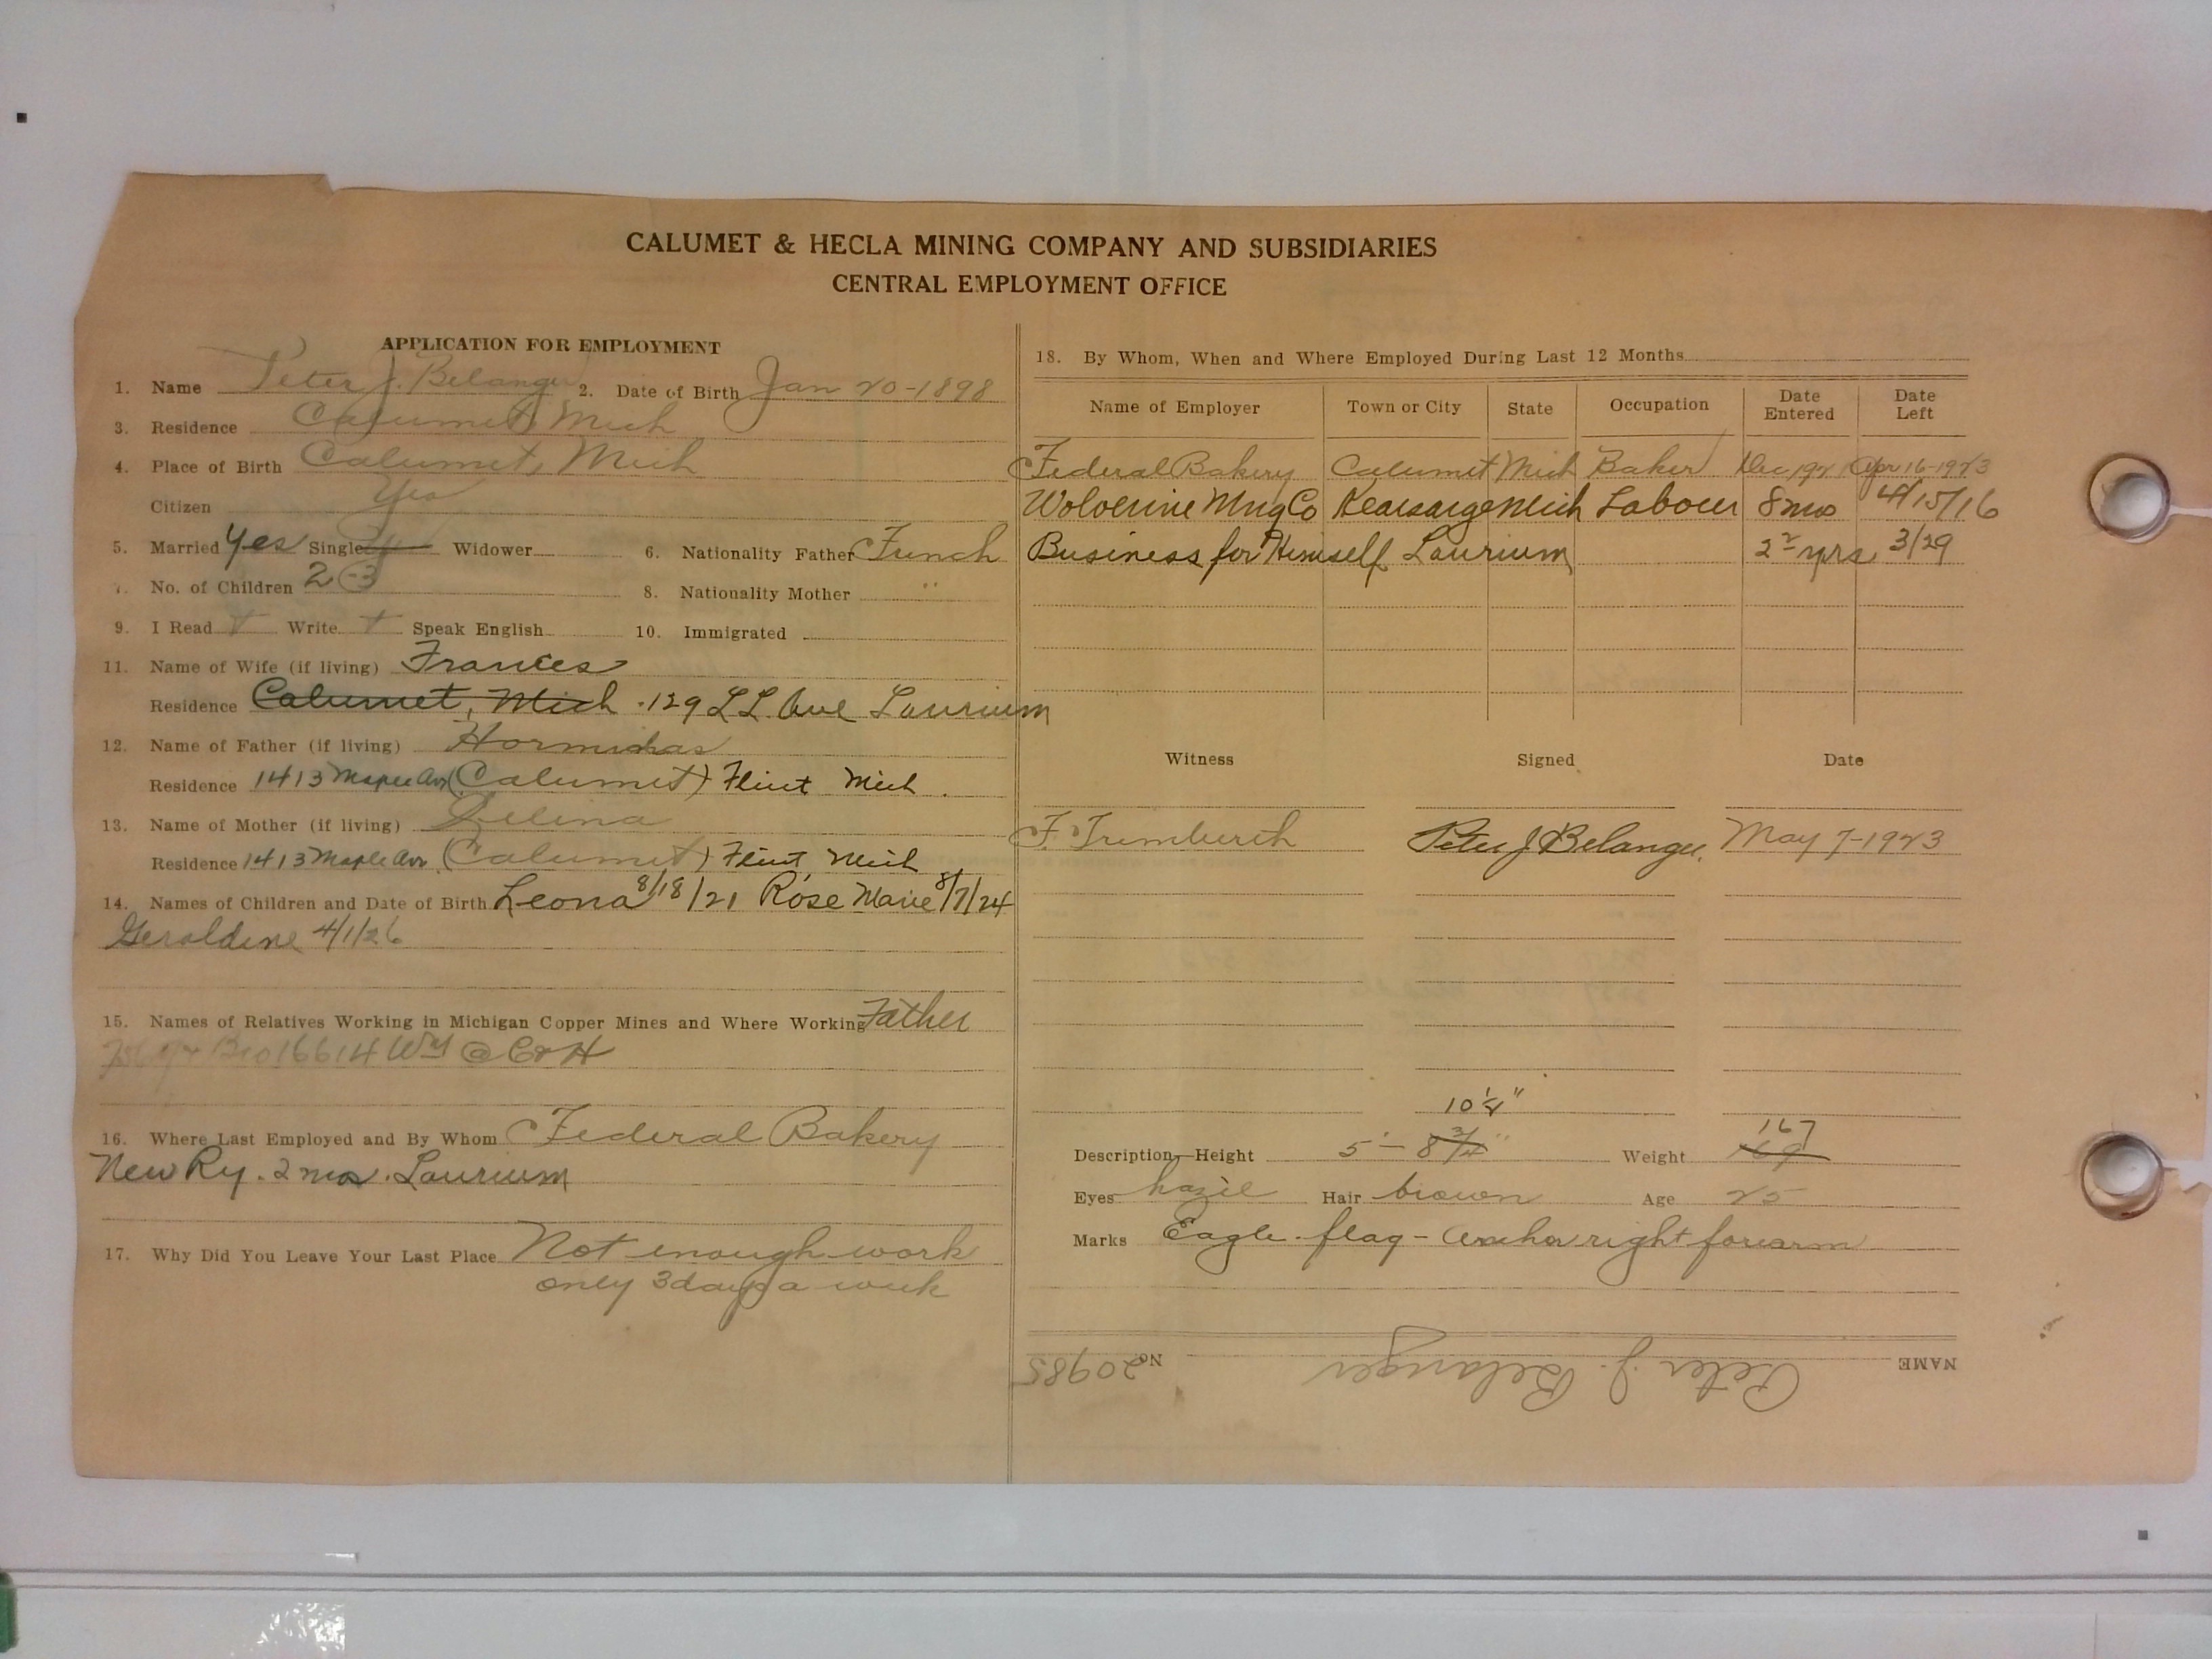 CALUMET & HECLA MINING COMPANY AND SUBSIDIARIES
CENTRAL EMPLOYMENT OFFICE
APPLICATION FOR EMPLOYMENT
1. Name Peter J. Belanger 2. Date of Birth Jan 20-1898
3. Residence Calumet, Mich
4. Place of Birth Calumet, Mich
Citizen Yes
5. Married Yes Single Widower 6. Nationality Father French
7. No. of Children 2 3 8. Nationality Mother "
9. I Read + Write + Speak English 10. Immigrated
11. Name of Wife (if living) Frances
Residence Calumet, Mich. 129 L.L. Ave Laurium
12. Name of Father (if living) Hormidas
Residence 1413 Maple Av (Calumet) Flint Mich.
13. Name of Mother (if living) Zelina
Residence 1413 Maple Av. (Calumet) Flint Mich
14. Names of Children and Date of Birth Leona 8/18/21 Rose Marie 8/7/24
Geraldine 4/1/26
15. Names of Relatives Working in Michigan Copper Mines and Where Working Father
Bro 16614 Wm @ C&H
16. Where Last Employed and By Whom Federal Bakery
New Ry. 2 mos. Laurium
17. Why Did You Leave Your Last Place Not enough work
only 3 days a week
18. By Whom, When and Where Employed During Last 12 Months
Name of Employer Town or City State Occupation Date Entered Date Left
Federal Bakery Calumet Mich Baker Dec 1921 Apr 16-1923
Wolverine Mng Co Kearsarge Mich Labour 8 mos 4/15/16
Business for Himself Laurium 2 yrs 3/29
Witness Signed Date
Peter J Belanger. May 7-1923
10 1/4"
167
Description—Height 5'- 8 3/4" Weight 169
Eyes hazel Hair brown Age 25
Marks Eagle - flag - anchor right forearm
NAME Peter J. Belanger No. 20985